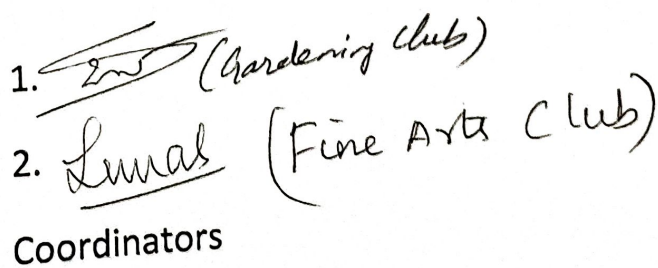 1. (Gardening Club)
2. (Fine Arts Club)
Coordinators